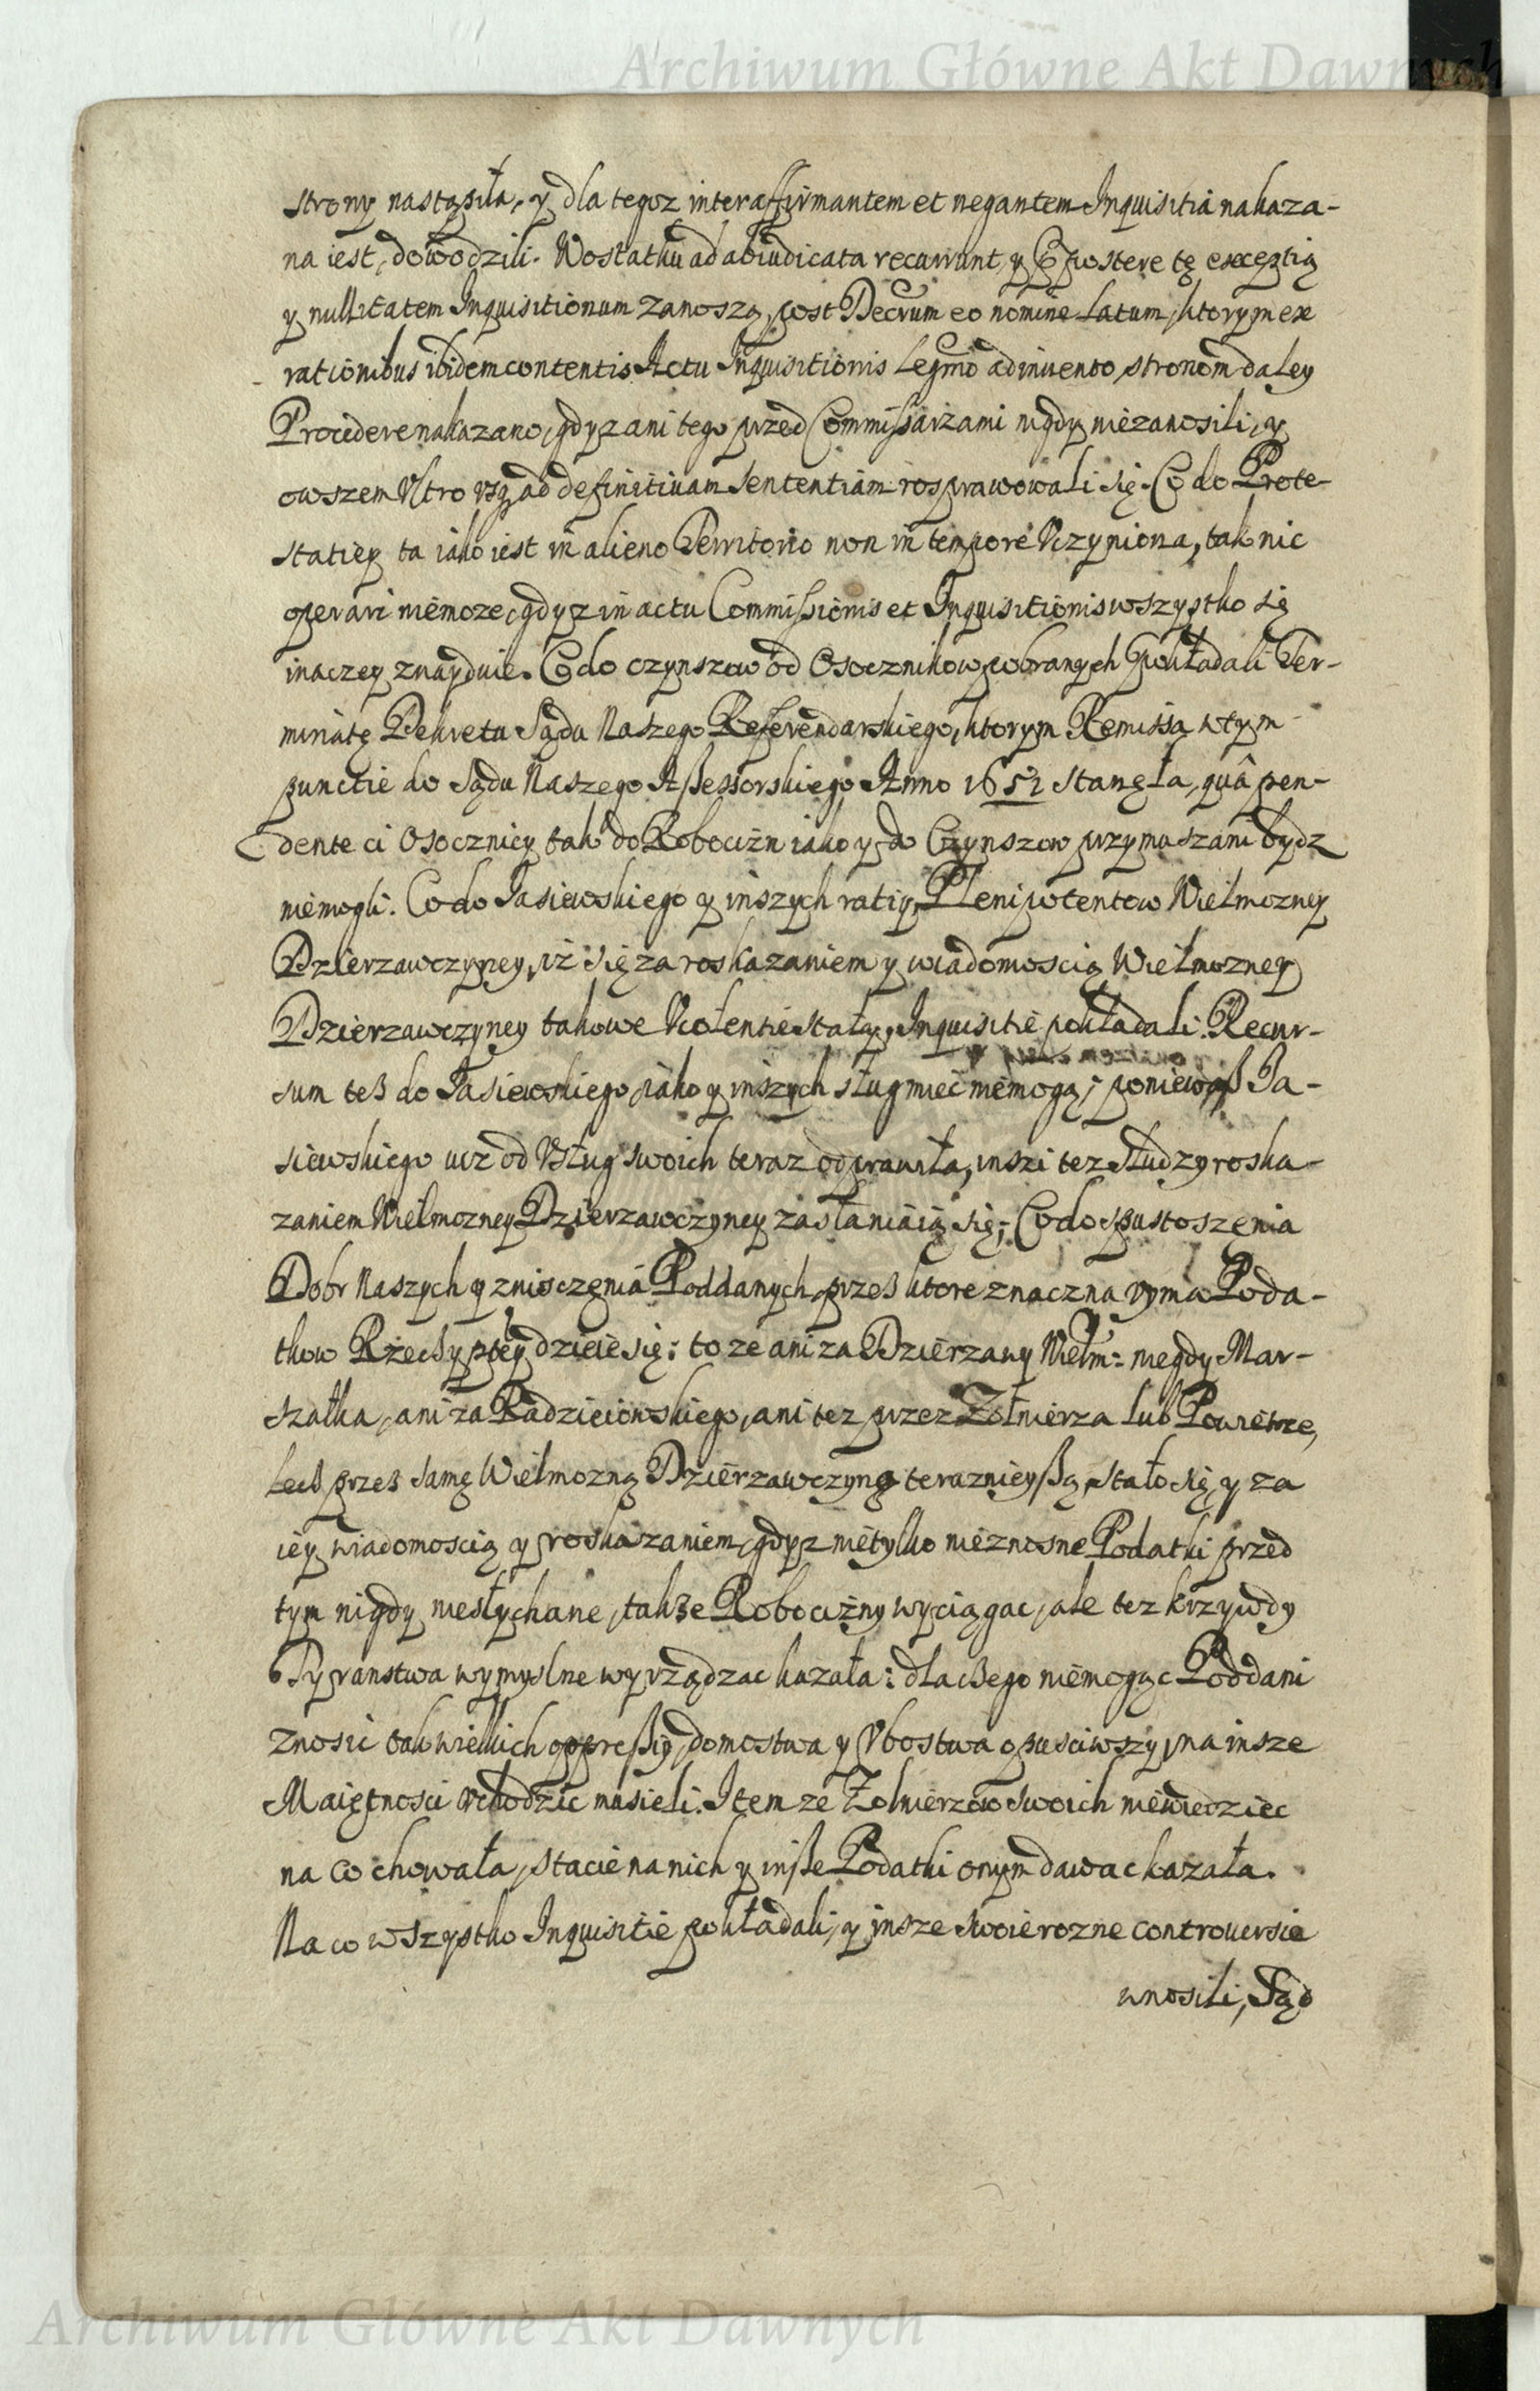 Archiwum Główne Akt Dawnych
strony nastąpiła, y dla tegoz inter affirmantem et negantem Inquisitia nakaza-
na iest, dowodzili. Wostatku ad abiudicata recurrunt, y expostere tę exceptią
y nullitatem Inquisitionum zanoszą, post Decrum eo nomine latum, ktorym ex
rationibus ibidem contentis Actu Inquisitionis legmo adinuento stronom daley
Procedere nakazano, gdyz ani tego przed Commissarzami nigdy niezanosili, y
owszem Vltro vsq ad definitiuam sententiam rosprawowali się. Co do Prote-
statiey ta iako iest in alieno Territorio non in tempore Vczyniona, tak nic
operari niemoze, gdyz in actu Commissionis et Inquisitionis wszystko się
inaczey znayduie. Co do czynszow od Osocznikow pobranych pokładali Ter-
minatę Dekretu Sądu Naszego Referendarskiego, ktorym Remissa wtym
punctie do Sądu Naszego Aßessorskiego Anno 1652 stanęła, quâ pen-
dente ci Osocznicy tak do Robocizn iako y do Czynszow przymuszani bydz
niemogli. Co do Jasiewskiego y inszych ratiy, Plenipotentow Wielmozney
Dzierzawczyney, iż się za roskazaniem y wiadomoscią Wielmozney
Dzierzawczyney takowe Violentie stały, Inquisitie pokładali. Recur-
sum teß do Jasiewskiego, iako y inszych sług miec niemogą; poniewaß Ja-
siewskiego iuz od Vsług swoich teraz odprawiła, inszi tez słudzy roska-
zaniem Wielmozney Dzierzawczyney zasłaniaią się; Co do spustoszenia
Dobr Naszych y znisczenia Poddanych, przeß ktore znaczna vyma Poda-
tkow Rzeczyptey dzieie się: to ze ani za Dzierzawy Wielm: niegdy Mar-
szałka, ani za Radzieiowskiego, ani tez przez Zołnierza lub Powietrze,
lecß przeß samę Wielmozną Dzierzawczyną teraznieyßą stało się, y za
iey wiadomoscią y roskazaniem, gdyz nietylko nieznosne Podatki przed
tym nigdy niesłychane, takße Robocizny wyciągac, ale tez krzywdy
Tyranstwa wymyslne wyrządzac kazała: dlacßego niemogąc Poddani
znosic tak wielkich oppreßiy, domostwa y Vbostwa opusciwszy, na insze
Maiętnosci vchodzic musieli. Item ze Zolnierzow swoich niewiedziec
na co chowała, stacie na nich y inße Podatki onym dawac kazała.
Na co wszystko Inquisitie pokładali, y insze swoie rozne controuersie
wnosili, Sąd
Archiwum Główne Akt Dawnych